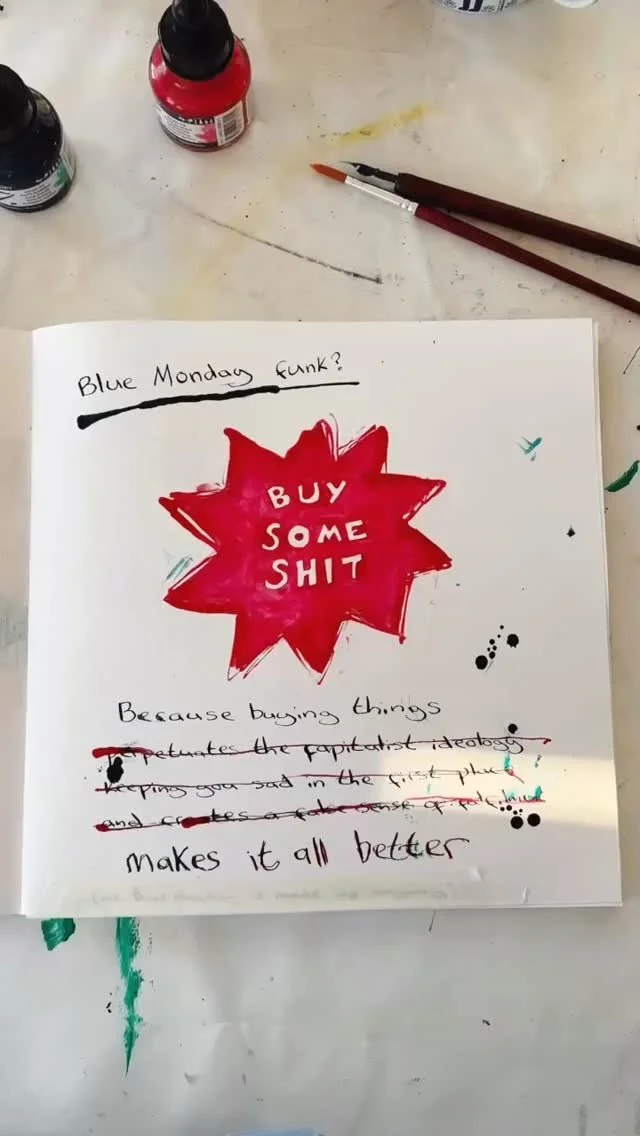 Blue Monday funk?
BUY
SOME
SHIT
Because buying things
perpetuates the capitalist ideology
keeping you sad in the first place
and creates a false sense of
makes it all better